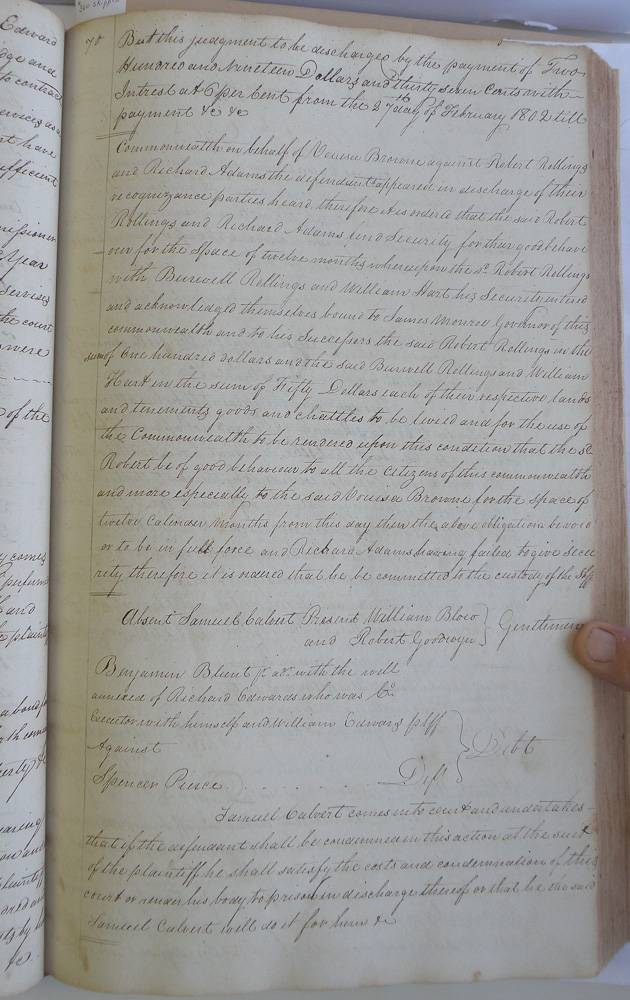 Edward
dge and
to contract
ervices as a
nt have
ufficient
Year
Services
the court
were
of the
y comes
and
70 But this judgment to be discharged by the payment of Two
Hundred and Nineteen Dollars and thirty seven Cents with
Intrest at 6 per Cent from the 27th day of February 1802 till
payment &c &c
Commonwealth on behalf of Vouisa Browne against Robert Rollings
and Richard Adams the defendants appeared in discharge of their
recognizance parties heard therefore it is ordered that the said Robert
Rollings and Richard Adams find Security for their good behave
our for the Space of twelve months whereupon the sd. Robert Rollings
with Burwell Rollings and William Hart his Security entered
and acknowledged themselves bound to James Monroe Govenor of this
commonwealth and to his Successors the said Robert Rollings in the
sum of One hundred dollars and the said Burwell Rollings and William
Hart in the sum of Fifty Dollars each of their respective lands
and tenements goods and chattles to be levied and for the use of
the Commonwealth to be rendered upon this condition that the sd.
Robert be of good behaviour to all the Citizens of this commonwealth
and more especially to the said Vouisa Browne for the Space of
twelve Calender Months from this day then the above obligation be void
or to be in full force and Richard Adams having failed to give secu
rity therefore it is ordered that he be committed to the custody of the Shff
Absent Samuel Calvert Present William Blow
and Robert Goodwyn } Gentlemen
Benjamin Blunt jr. adr. with the will
annexed of Richard Edwards who was Co.
Executor with himself and William Edwards plff
Against } Debt
Spencer Pierce . . . . . . Deft
Samuel Calvert comes into court and undertakes
that if the defendant shall be condemned in this action at the suit
of the plaintiff he shall satisfy the costs and condemnation of this
court or render his body to prison in discharge thereof or that he the said
Samuel Calvert will do it for him &c